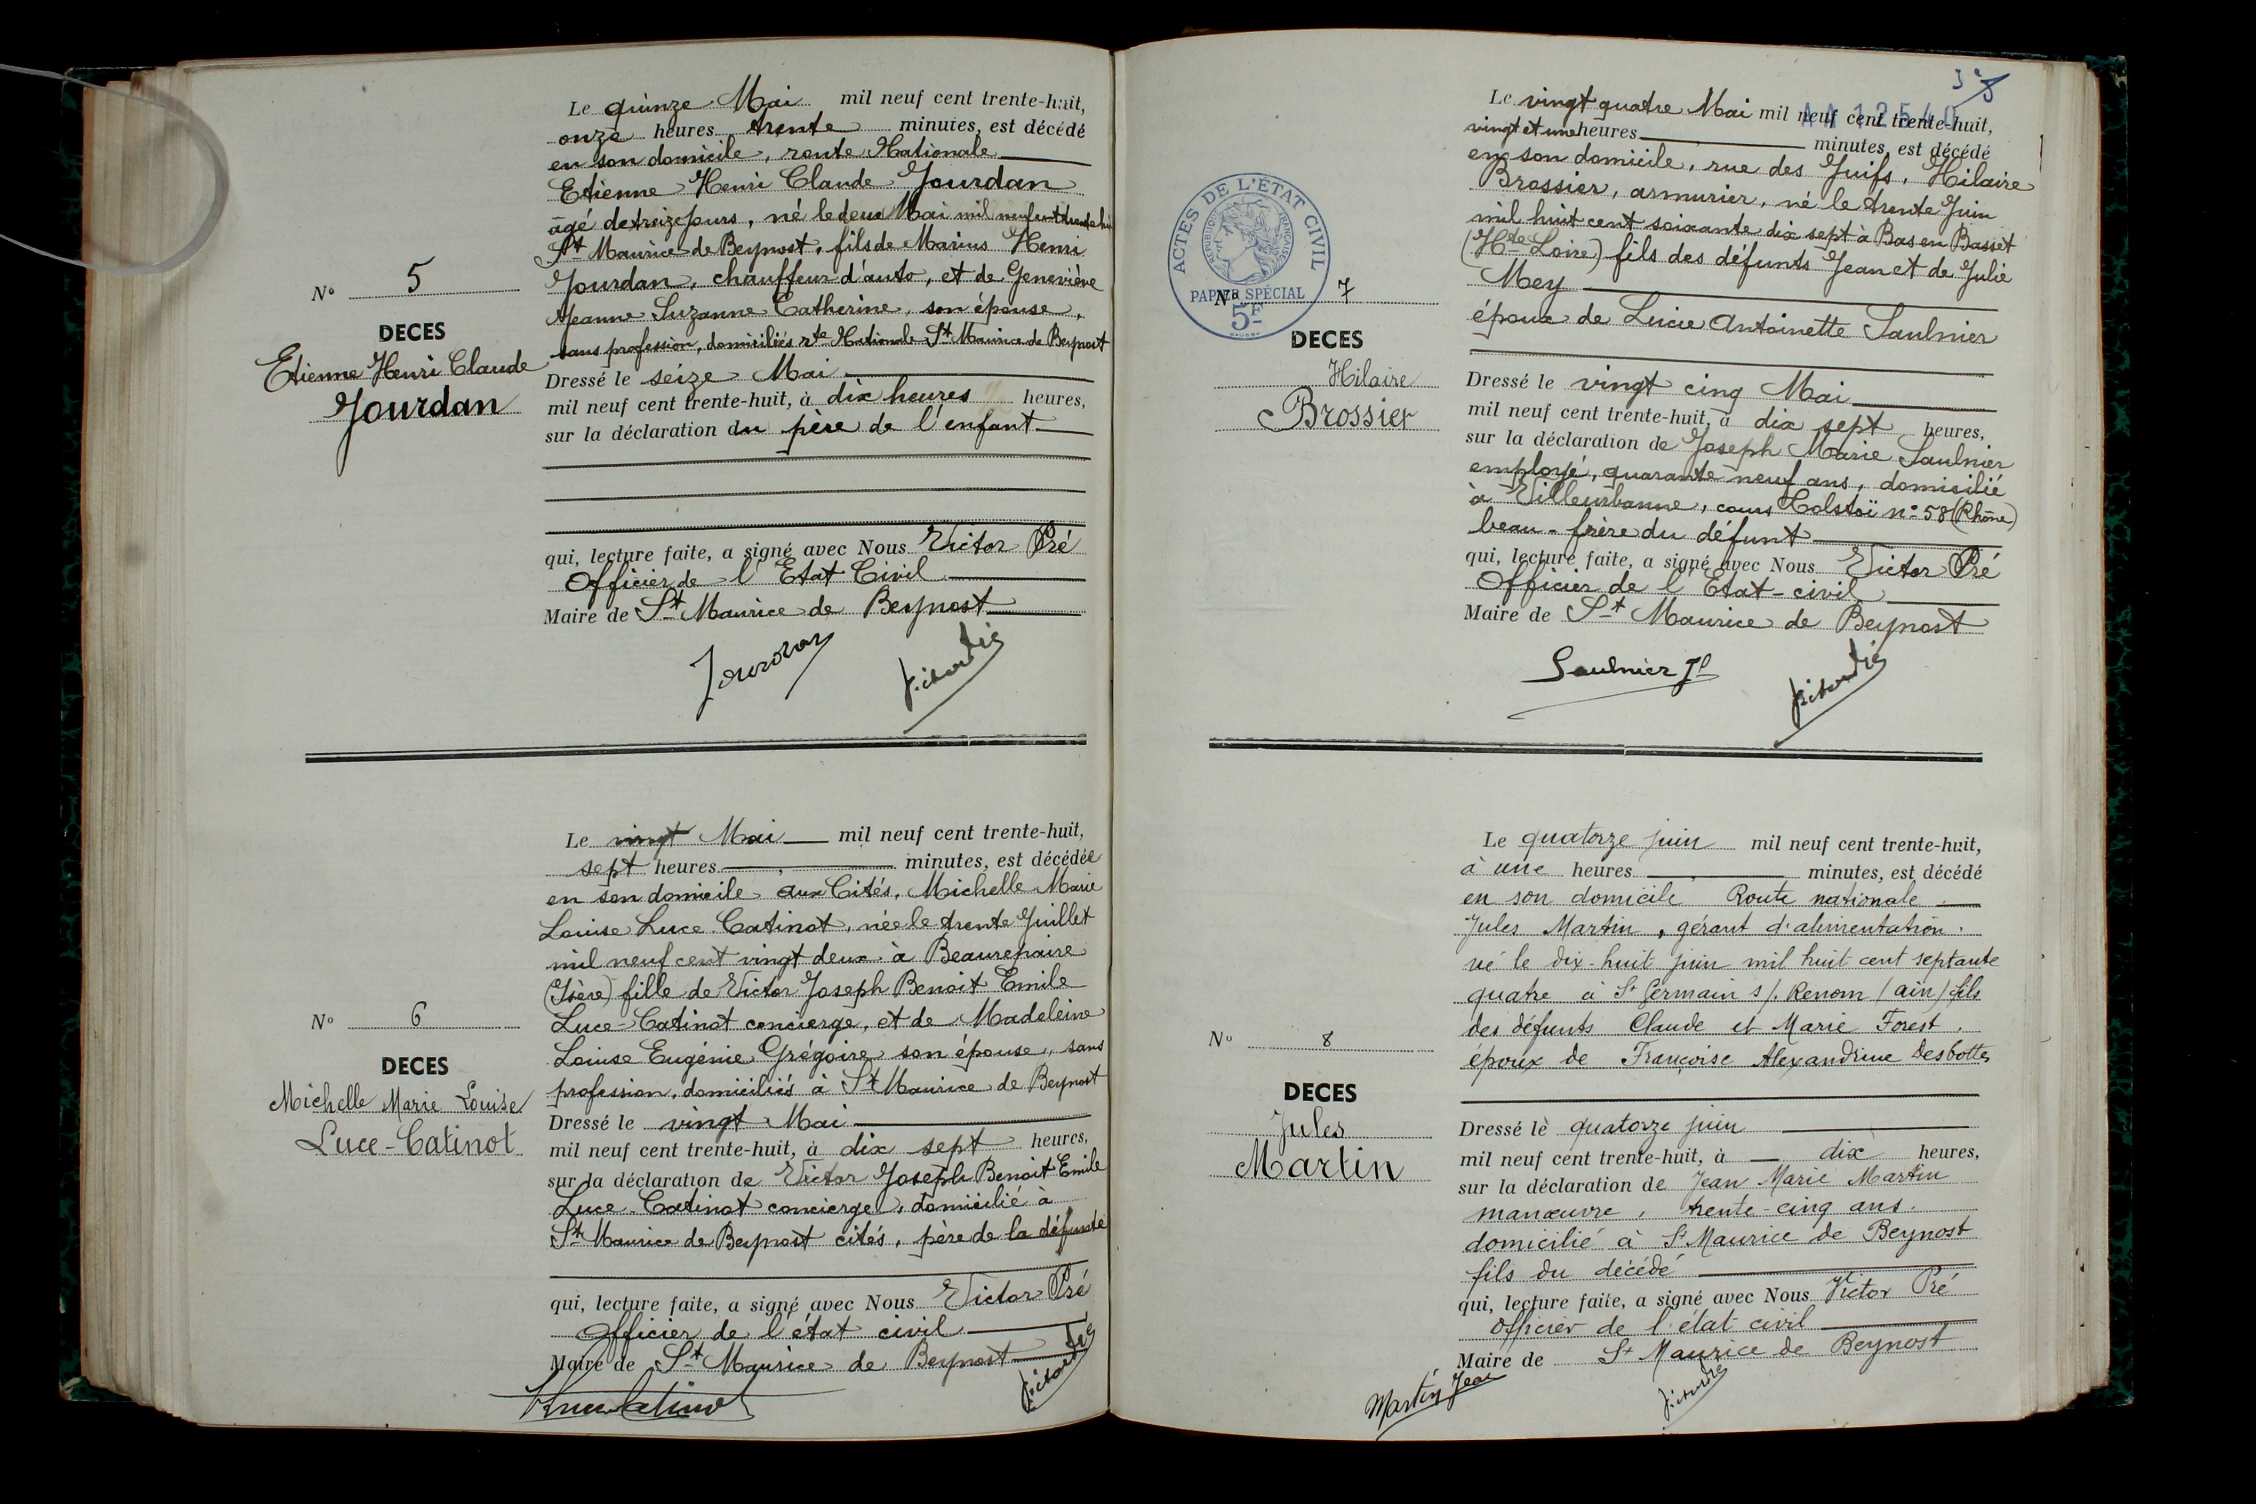 Le quinze Mai mil neuf cent trente-huit,
onze heures trente minutes, est décédé
en son domicile, route Nationale
Etienne Henri Claude Jourdan
âgé de treize jours, né le deux Mai mil neuf cent trente hui
St Maurice de Beynost, fils de Marius Henri
Jourdan, chauffeur d'auto, et de Geneviève
Jeanne Suzanne Catherine, son épouse,
sans profession, domiciliés rte Nationale St Maurice de Beynost
Dressé le seize Mai
mil neuf cent trente-huit, à dix heures heures,
sur la déclaration du père de l'enfant
qui, lecture faite, a signé avec Nous Victor Pré
Officier de l'Etat Civil
Maire de St Maurice de Beynost
Jourdan
No 5
DECES
Etienne Henri Claude
Jourdan
Le vingt Mai mil neuf cent trente-huit,
sept heures minutes, est décédée
en son domicile aux Cités, Michelle Marie
Louise Luce Catinot, née le trente Juillet
mil neuf cent vingt deux à Beaurepaire
(Isère) fille de Victor Joseph Benoit Emile
Luce-Catinot concierge, et de Madeleine
Louise Eugénie Grégoire son épouse, sans
profession, domiciliés à St Maurice de Beynost
Dressé le vingt Mai
mil neuf cent trente-huit, à dix sept heures,
sur la déclaration de Victor Joseph Benoit Emile
Luce-Catinot concierge, domicilié à
St Maurice de Beynost cités, père de la défunte
qui, lecture faite, a signé avec Nous Victor Pré
Officier de l'état civil
Maire de St Maurice de Beynost
No 6
DECES
Michelle Marie Louise
Luce-Catinot
Le vingt quatre Mai mil neuf cent trente-huit,
vingt et une heures minutes, est décédé
en son domicile, rue des Juifs, Hilaire
Brossier, armurier, né le trente Juin
mil huit cent soixante dix sept à Bas en Basset
(Hte Loire) fils des défunts Jean et de Julie
Mey
époux de Lucie Antoinette Saulnier
Dressé le vingt cinq Mai
mil neuf cent trente-huit, à dix sept heures,
sur la déclaration de Joseph Marie Saulnier
employé, quarante neuf ans, domicilié
à Villeurbanne, cours Tolstoï n° 58 (Rhône)
beau-frère du défunt
qui, lecture faite, a signé avec Nous Victor Pré
Officier de l'Etat-civil
Maire de St Maurice de Beynost
Saulnier Jh
ACTES DE L'ÉTAT CIVIL
RÉPUBLIQUE FRANÇAISE
PAPIER SPÉCIAL
5F
No 7
DECES
Hilaire
Brossier
Le quatorze juin mil neuf cent trente-huit,
à une heures minutes, est décédé
en son domicile Route nationale
Jules Martin, gérant d'alimentation.
né le dix-huit juin mil huit cent septante
quatre à St Germain s/. Renom (ain) fils
des défunts Claude et Marie Forest,
époux de Françoise Alexandrine Desbottes
Dressé le quatorze juin
mil neuf cent trente-huit, à dix heures,
sur la déclaration de Jean Marie Martin
manœuvre, trente-cinq ans.
domicilié à St Maurice de Beynost
fils du décédé
qui, lecture faite, a signé avec Nous Victor Pré
officier de l'état civil
Maire de St Maurice de Beynost
Martin Jean
No 8
DECES
Jules
Martin